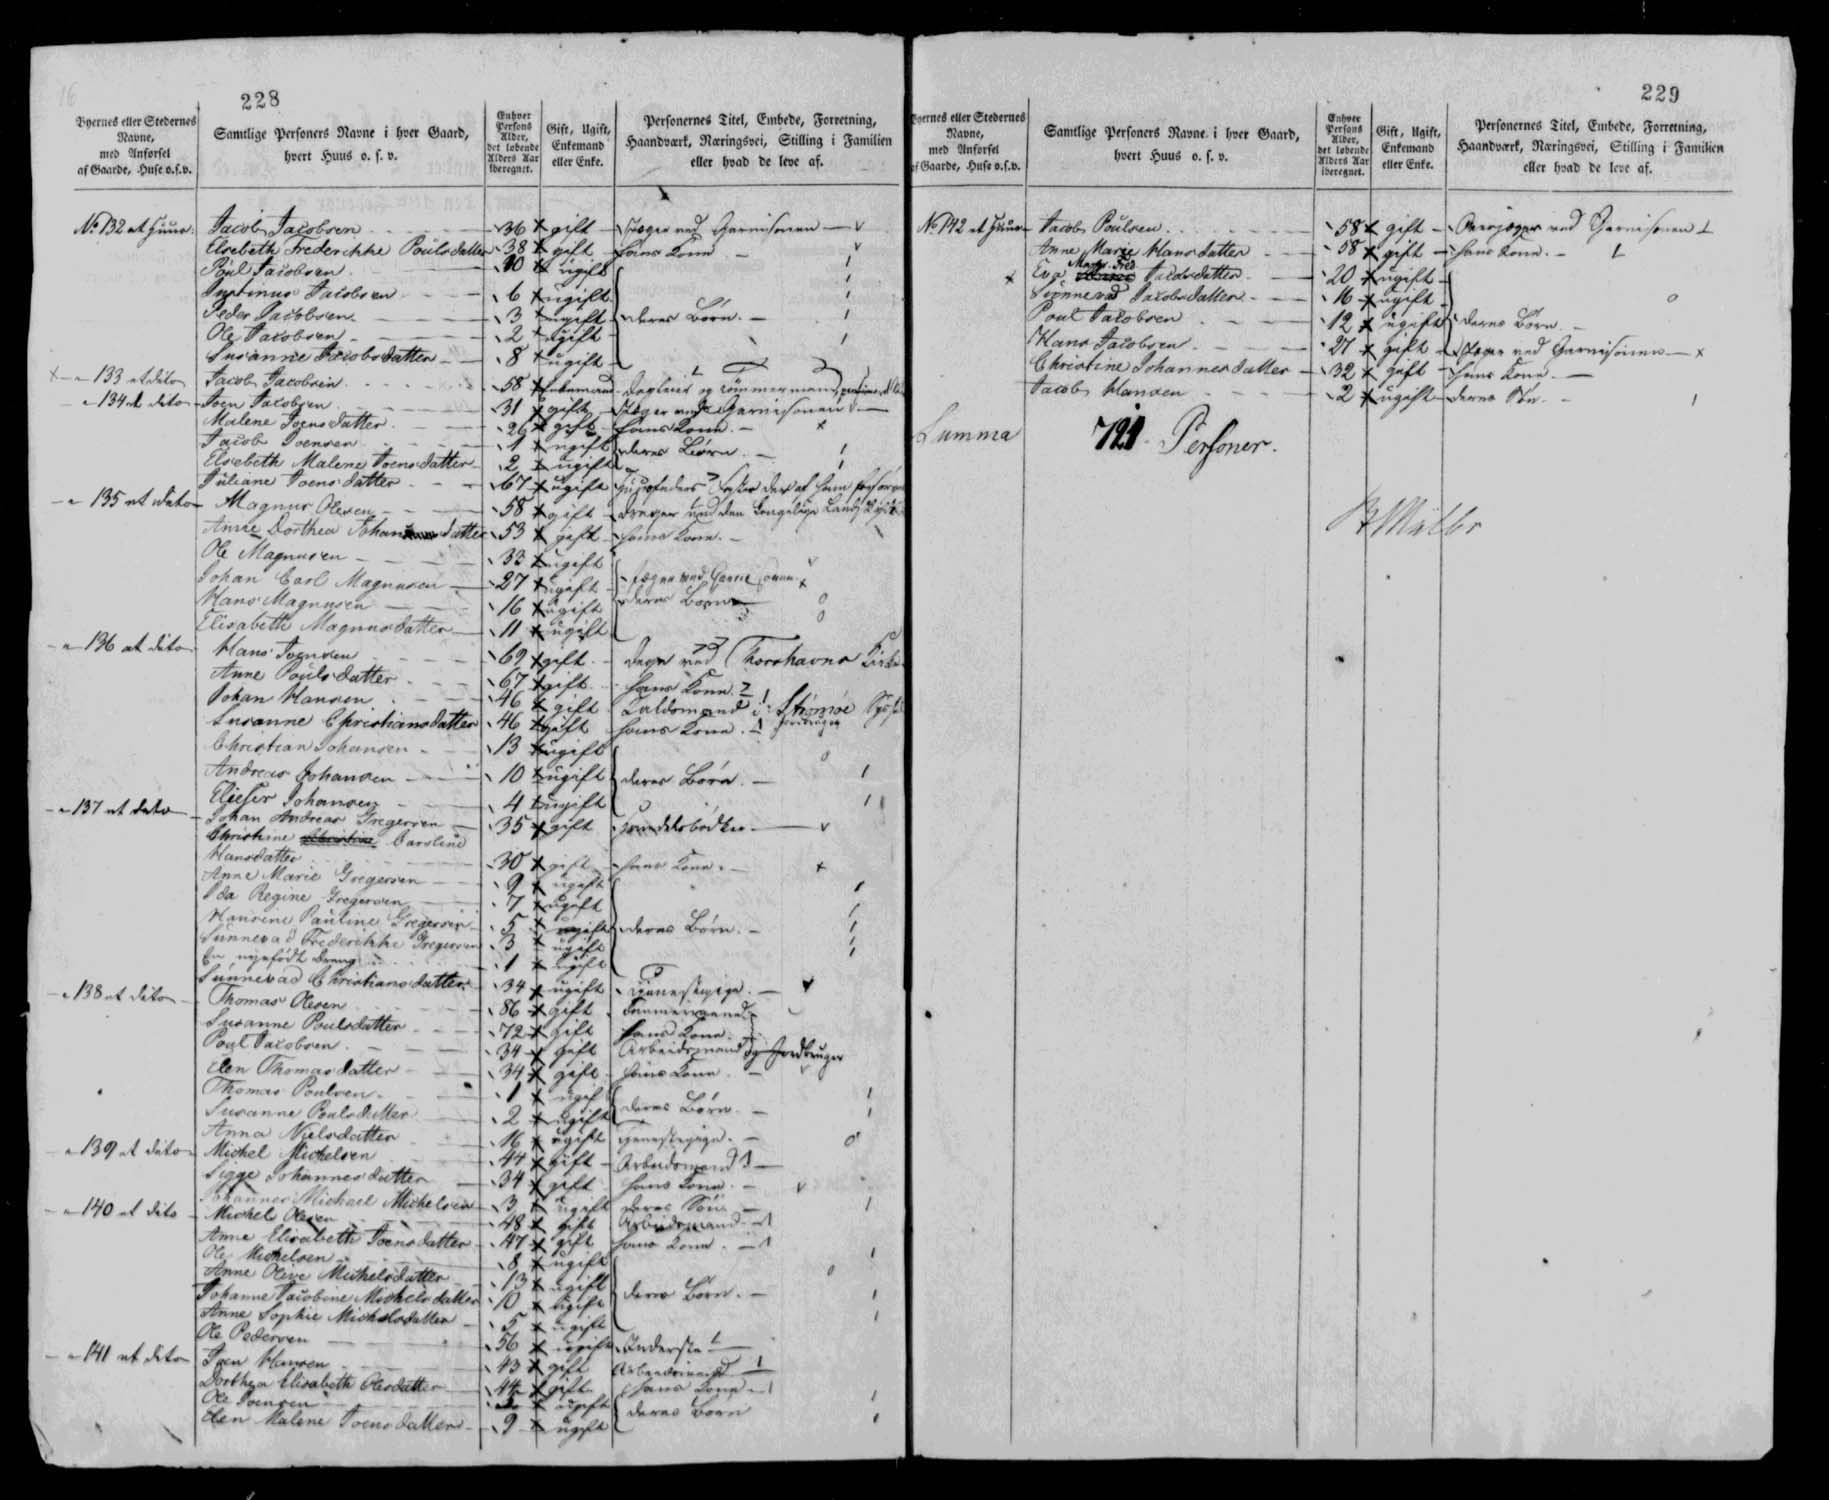 228
Byernes eller Stedernes Navne, med Anførsel af Gaarde, Huse o.s.v.
Samtlige Personers Navne i hver Gaard, hvert Huus o. s. v.
Enhver Persons Alder, det løbende Alders Aar iberegnet.
Gift, Ugift, Enkemand eller Enke.
Personernes Titel, Embede, Forretning, Haandværk, Næringsvei, Stilling i Familien eller hvad de leve af.
No. 132 et Huus Jacob Jacobsen 36 gift Jæger ved Garnisonen
Elsebeth Frederikke Poulsdatter 38 gift hans Kone
Poul Jacobsen 10 ugift
Justinus Jacobsen 6 ugift
Peder Jacobsen 3 ugift deres Børn
Ole Jacobsen 2 ugift
Susanne Jacobsdatter 8 ugift
133 et dito Jacob Jacobsen 58 Enkemand Dagleier og Tømmermand
134 et dito Joen Jacobsen 31 gift Jæger ved Garnisonen
Malene Joensdatter 26 gift hans Kone
Jacob Joensen 1 ugift deres Børn
Elsebeth Malene Joensdatter 2 ugift
Juliane Joensdatter 67 ugift
135 et dito Magnus Olesen 58 gift
Anne Dorthea datter 53 gift hans Kone
Ole Magnusen 33 ugift
Johan Carl Magnusen 27 ugift Jæger ved Garnisonen
Hans Magnusen 16 ugift deres Børn
Elisabeth Magnusdatter 11 ugift
136 et dito Hans Joensen 69 gift Degn ved Thorshavns Kirke
Anne Poulsdatter 67 gift hans Kone
Johan Hansen 46 gift i Strømøe
Susanne Christiansdatter 46 gift hans Kone
Christian Johansen 13 ugift
Andreas Johansen 10 ugift deres Børn
Elieser Johansen 4 ugift
137 et dito Johan Andreas Gregersen 35 gift
Christine Caroline
Hansdatter 30 gift hans Kone
Anne Marie Gregersen 9 ugift
Ida Regine Gregersen 7 ugift
Hansine Pauline Gregersen 5 ugift deres Børn
Sunneva Frederikke Gregersen 3 ugift
En nyefødt Dreng 1 ugift
Sunnevad Christiansdatter 34 ugift Tjenestepige
138 et dito Thomas Olesen 86 gift Tømmermand
Susanne Poulsdatter 72 gift hans Kone
Poul Jacobsen 34 gift Arbeidsmand og Jordbruger
Elen Thomasdatter 34 gift hans Kone
Thomas Poulsen 1 ugift deres Børn
Susanne Poulsdatter 2 ugift
Anna Nielsdatter 16 ugift Tjenestepige
139 et dito Michel Michelsen 44 gift Arbeidsmand
Sigge Johannesdatter 34 gift hans Kone
Johannes Michael Michelsen 3 ugift deres Søn
140 et dito Michel Olesen 48 gift Arbeidsmand
Anne Elisabeth Joensdatter 47 gift hans Kone
Ole Michelsen 8 ugift
Anne Olive Michelsdatter 13 ugift
Johanne Jacobine Michelsdatter 10 ugift deres Børn
Anne Sophie Michelsdatter 5 ugift
Ole Pedersen 56 ugift Inderste
141 et dito Joen Hansen 43 gift Arbeidsmand
Dorthea Elisabeth Olesdatter 44 gift hans Kone
Ole Joensen ugift deres Børn
Elen Malene Joensdatter 9 ugift
229
Byernes eller Stedernes Navne, med Anførsel af Gaarde, Huse o.s.v.
Samtlige Personers Navne i hver Gaard, hvert Huus o. s. v.
Enhver Persons Alder, det løbende Alders Aar iberegnet.
Gift, Ugift, Enkemand eller Enke.
Personernes Titel, Embede, Forretning, Haandværk, Næringsvei, Stilling i Familien eller hvad de leve af.
No. 142 et Huus Jacob Poulsen 58 gift Overjæger ved Garnisonen
Anne Marie Hansdatter 58 gift hans Kone
Eva Jacobsdatter 20 ugift
Sunnevad Jacobsdatter 16 ugift
Poul Jacobsen 12 ugift deres Børn
Hans Jacobsen 27 gift Jæger ved Garnisonen
Christine Johannesdatter 32 gift hans Kone
Jacob Hansen 2 ugift deres Søn
Summa 724 Personer.